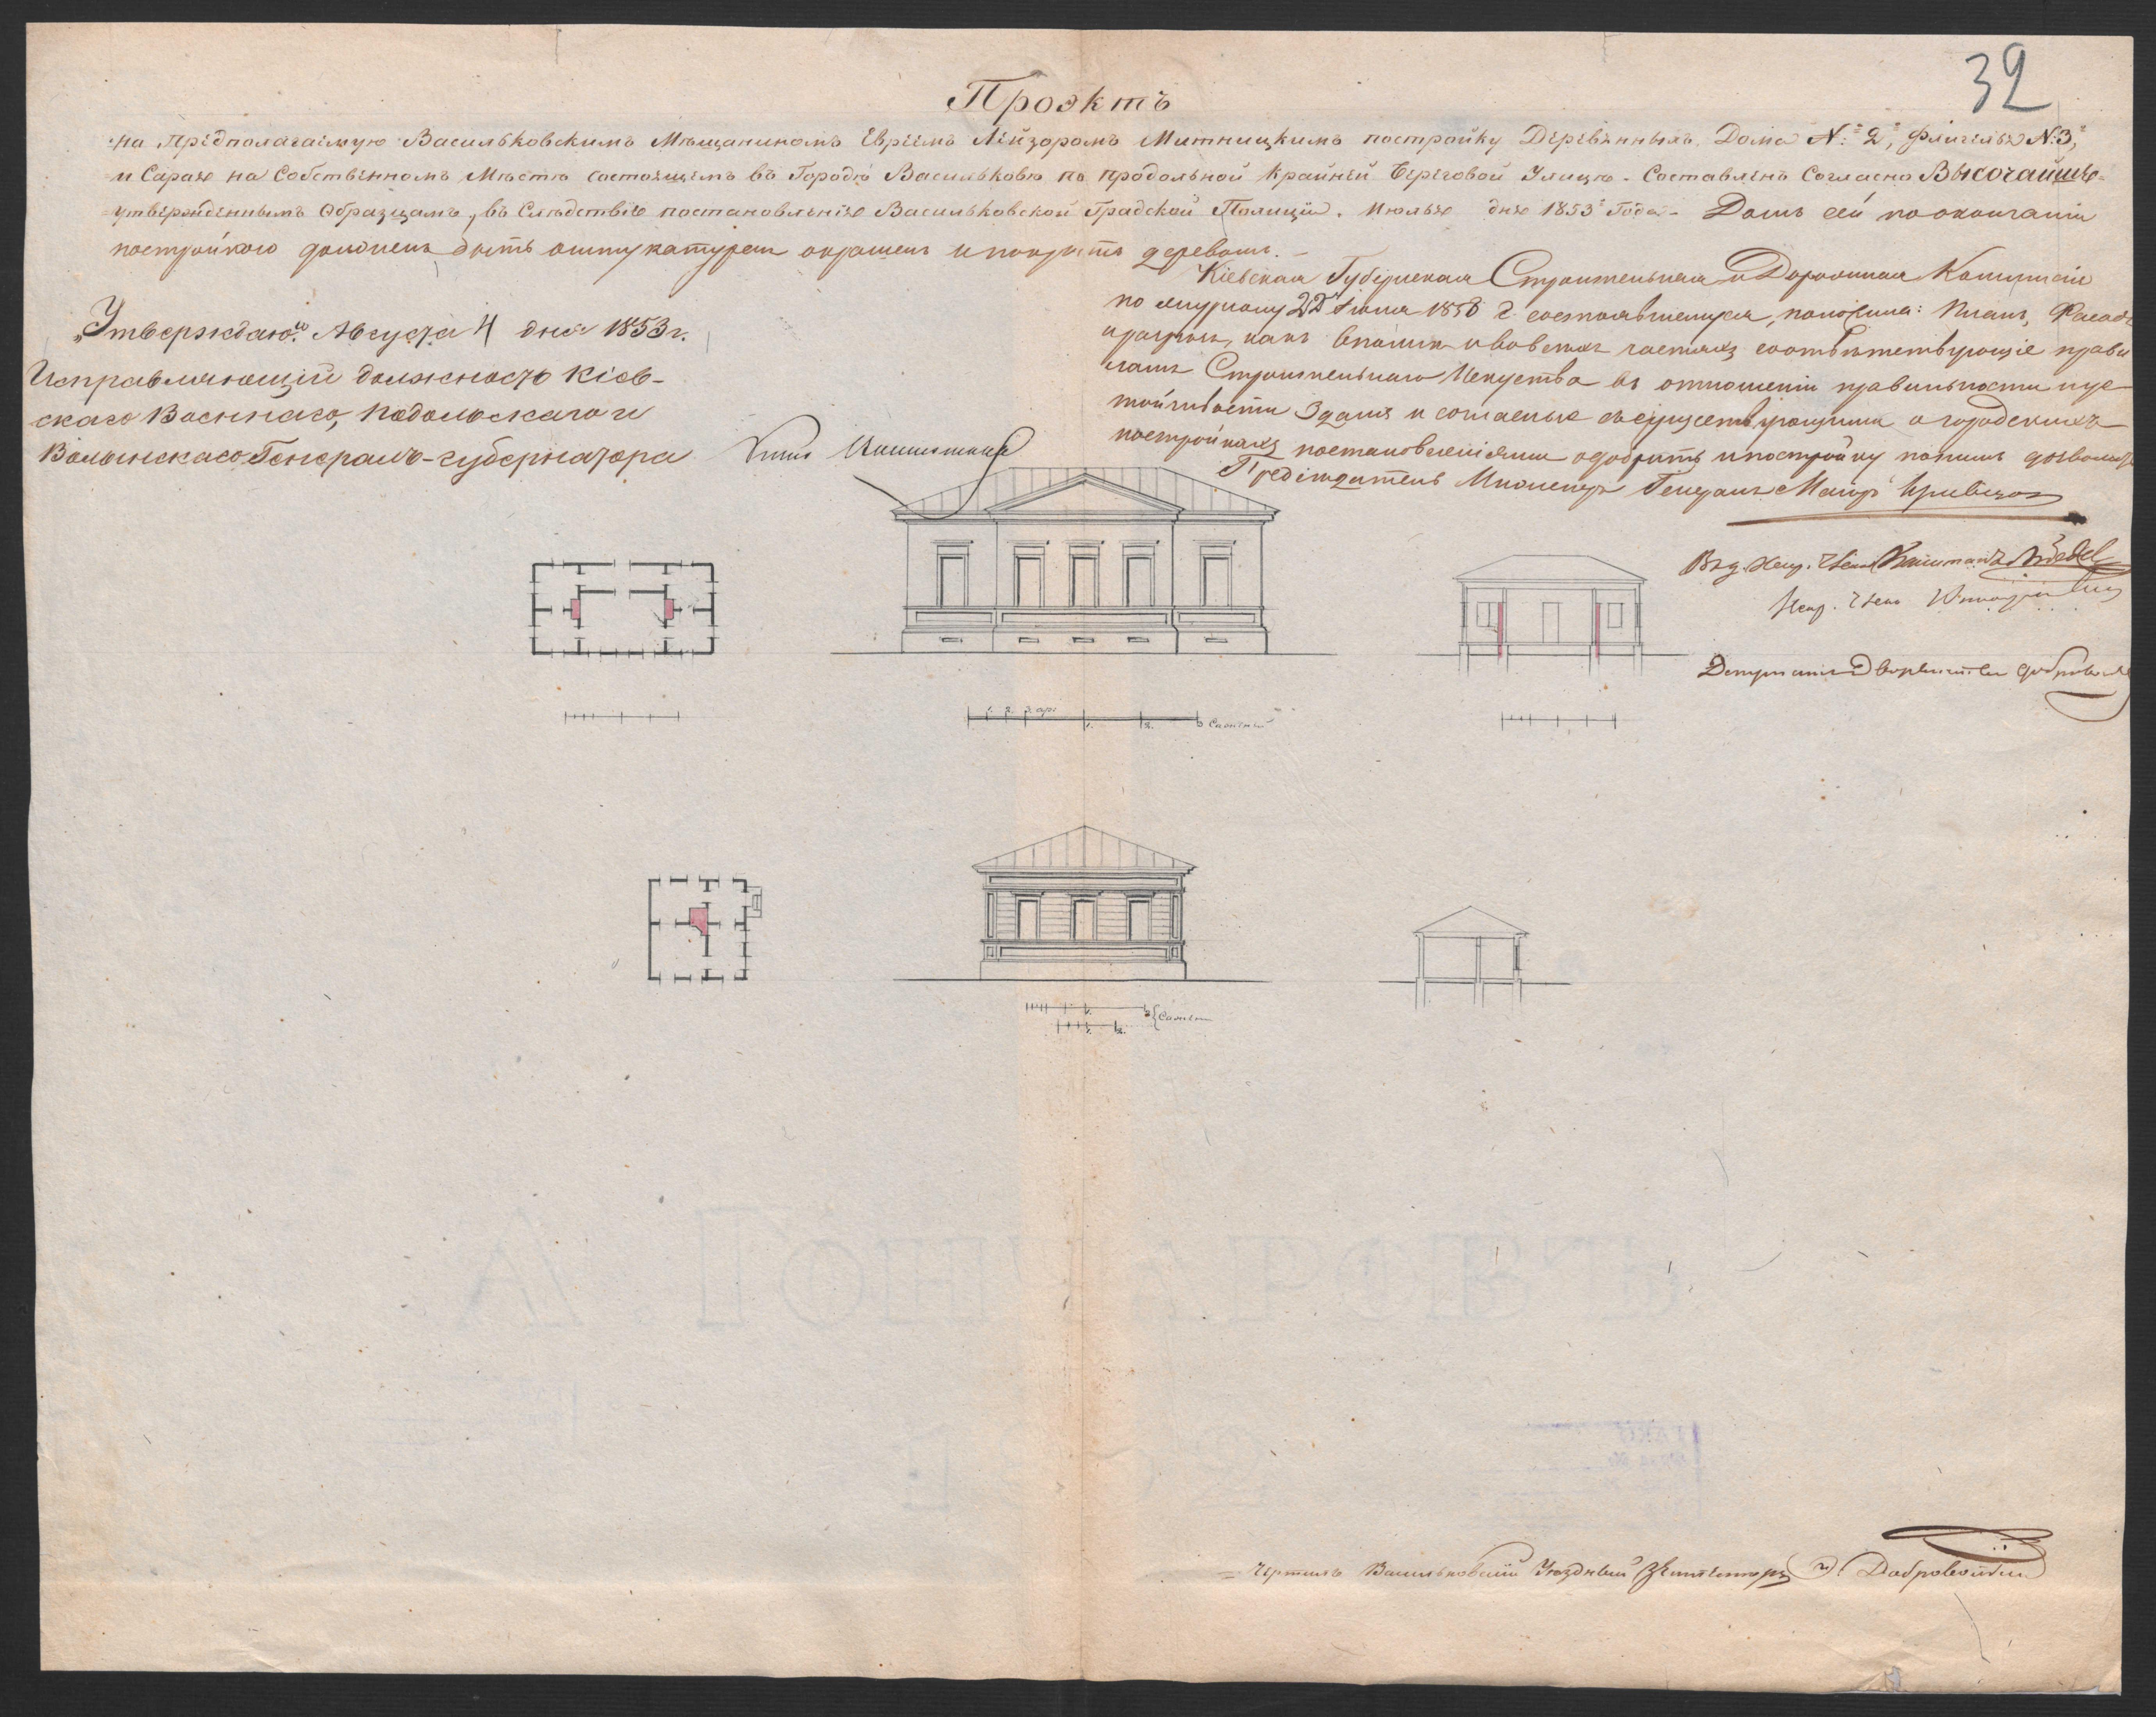 32
Проэктъ
на предполагаемую Васильковскимъ Мѣщаниномъ Евреемъ Лейзоромъ Митницкимъ постройку Деревянныхъ Дома №: 2, флигелья №3,
и Сарая на Собственномъ Мѣстѣ состоящемъ въ Городѣ Васильковѣ по продольной Крайней Береговой Улицѣ. Составленъ Согласно Высочайше
утвержденнымъ Образцамъ, въ Слѣдствіе постановленія Васильковской Градской Полиціи. Июлья дня 1853 Года. Домъ сей по окончаніи
постройкою долженъ быть оштукатуренъ окрашенъ и покрытъ деревомъ.
„Утверждаю“ Августа 4 дня 1853 г.
Исправляющій должность Кіев-
скаго Военнаго, Подольскаго и
Волынскаго Генералъ-губернатора
Кіевская Губернская Строительная и Дорожная Коммисія
по журналу 1853 г. состоявшемуся, положила: Планъ, Фасадъ
какъ вполнѣ и во всехъ частяхъ соотвѣтствующіе прави
ламъ Строительнаго Искуства въ отношеніи правильности и ус-
тойчивости Зданія и согласные съ существующими о городскихъ
постройкахъ постановленіями одобрить и постройку по нимъ дозволить
Председатель Инженеръ Генералъ Маіоръ
1. 2. 3 арш
1. 2. 3 Саженый
1. 3 Сажени
1. 2.
Чертилъ Васильковскій Уѣздный